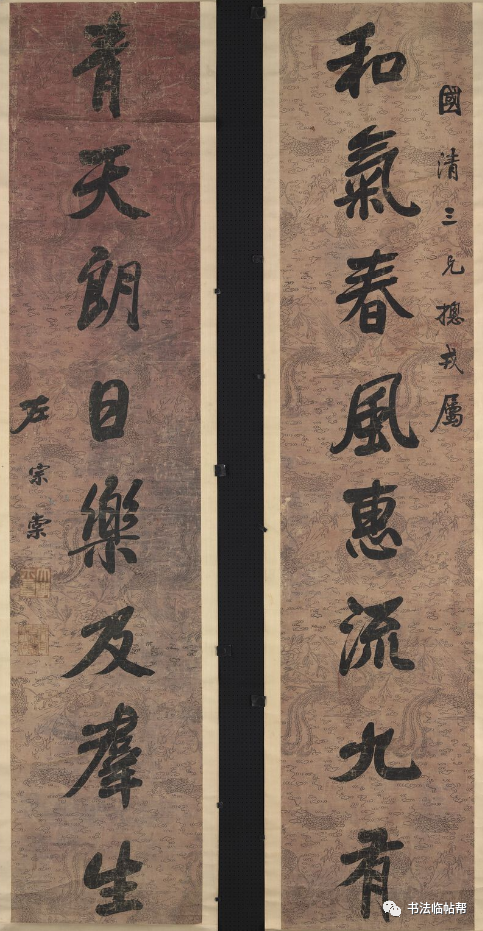 國清三兄摠戎屬
和氣春風惠流九有
青天朗日樂及羣生
左宗棠
书法临帖帮